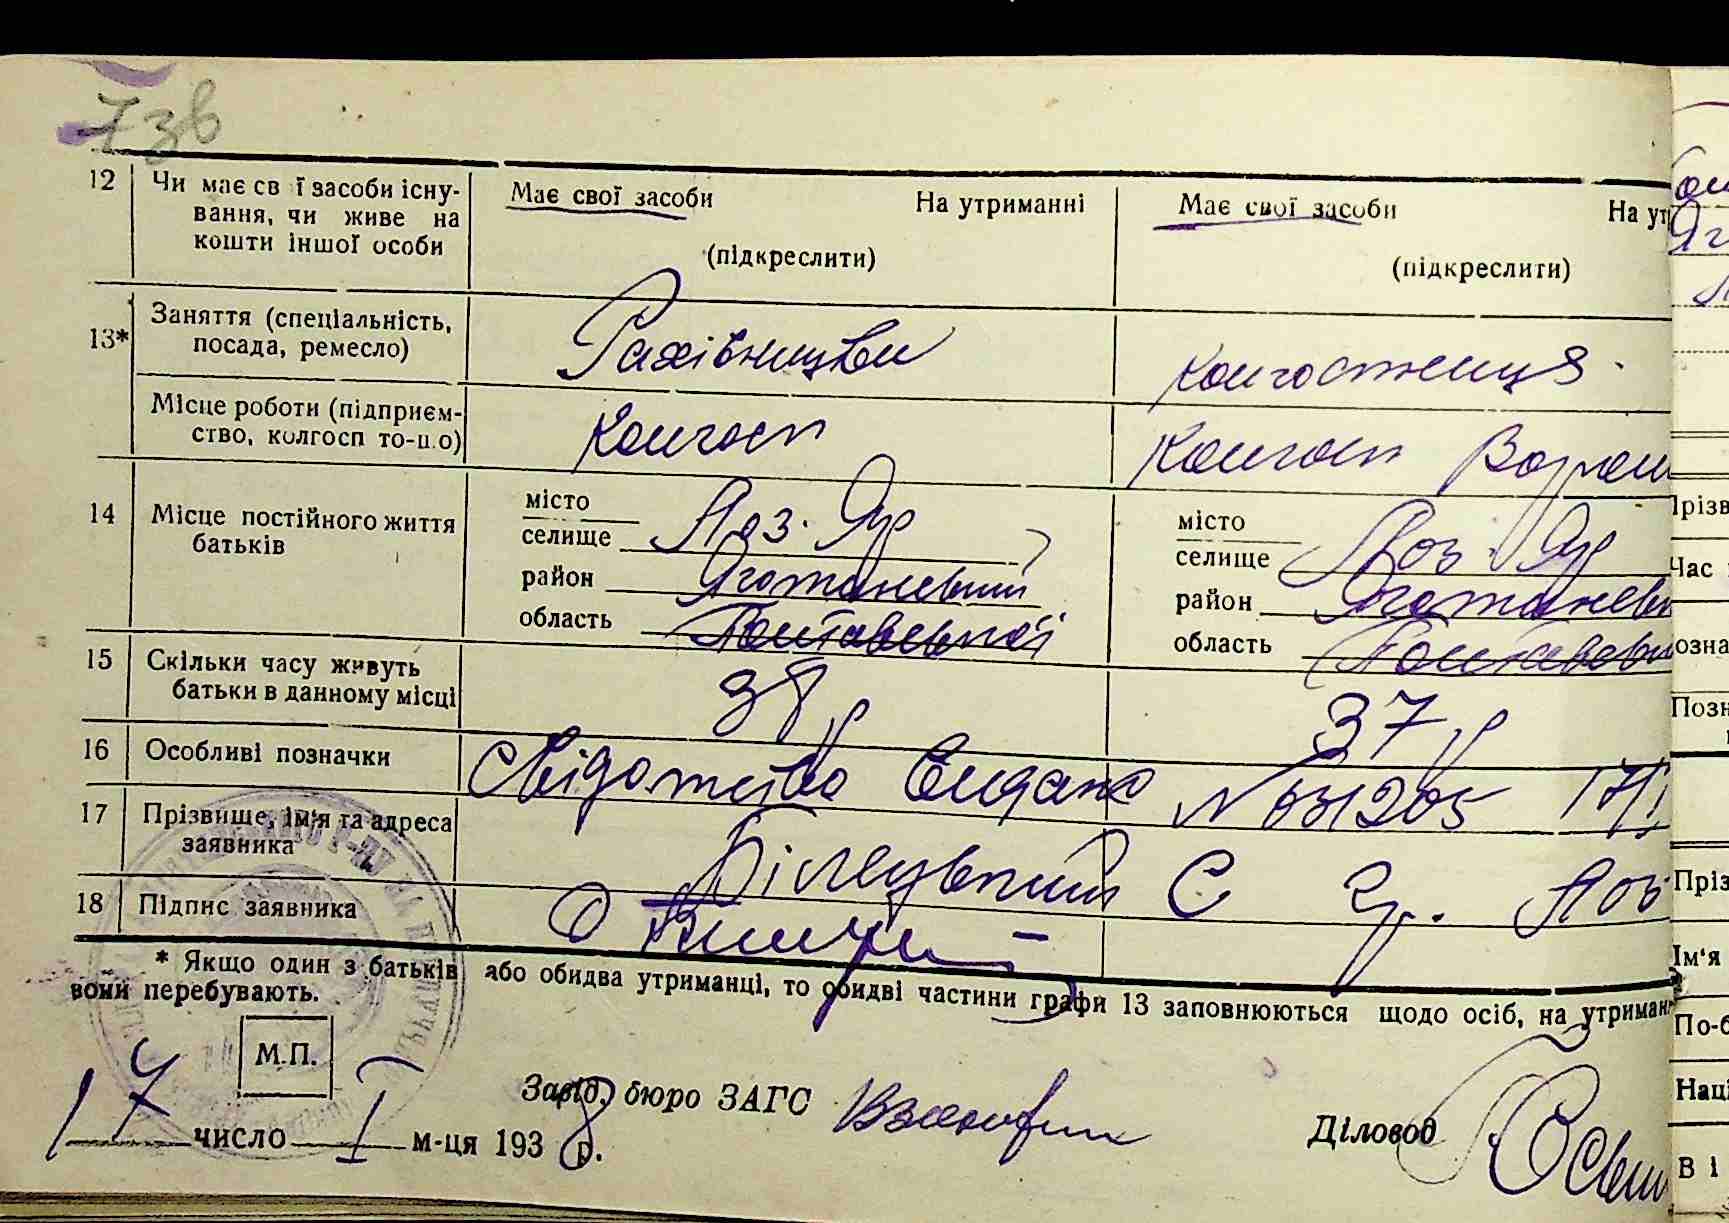 7 зв
12 Чи має св ї засоби існу- Має свої засоби На утриманні Має свої засоби На ут
вання, чи живе на
кошти іншої особи (підкреслити) (підкреслити)
13* Заняття (спеціальність, Рахівництви колгостниця
посада, ремесло)
Місце роботи (підприєм- Колгосп Колгосп Ворош
ство, колгосп то-що)
14 Місце постійного життя місто місто
батьків селище Лоз. Яр селище Лоз. Яр
район Яготиневький район Яготинев
область Полтавської область Полтавськ
15 Скільки часу живуть 38 р 37 р
батьки в данному місці
16 Особливі позначки Свідотство видано № 031205 17/І
17 Прізвище, ім'я та адреса Білецький С Гр. Лоз
заявника
18 Підпис заявника
* Якщо один з батьків або обидва утриманці, то обидві частини графи 13 заповнюються щодо осіб, на утриман
вони перебувають.
М.П.
Завід. бюро ЗАГС
Діловод
17 число І м-ця 1938 р.
Прізв
Час
озна
Позн
Пріз
Ім'я
По-б
Наці
В і